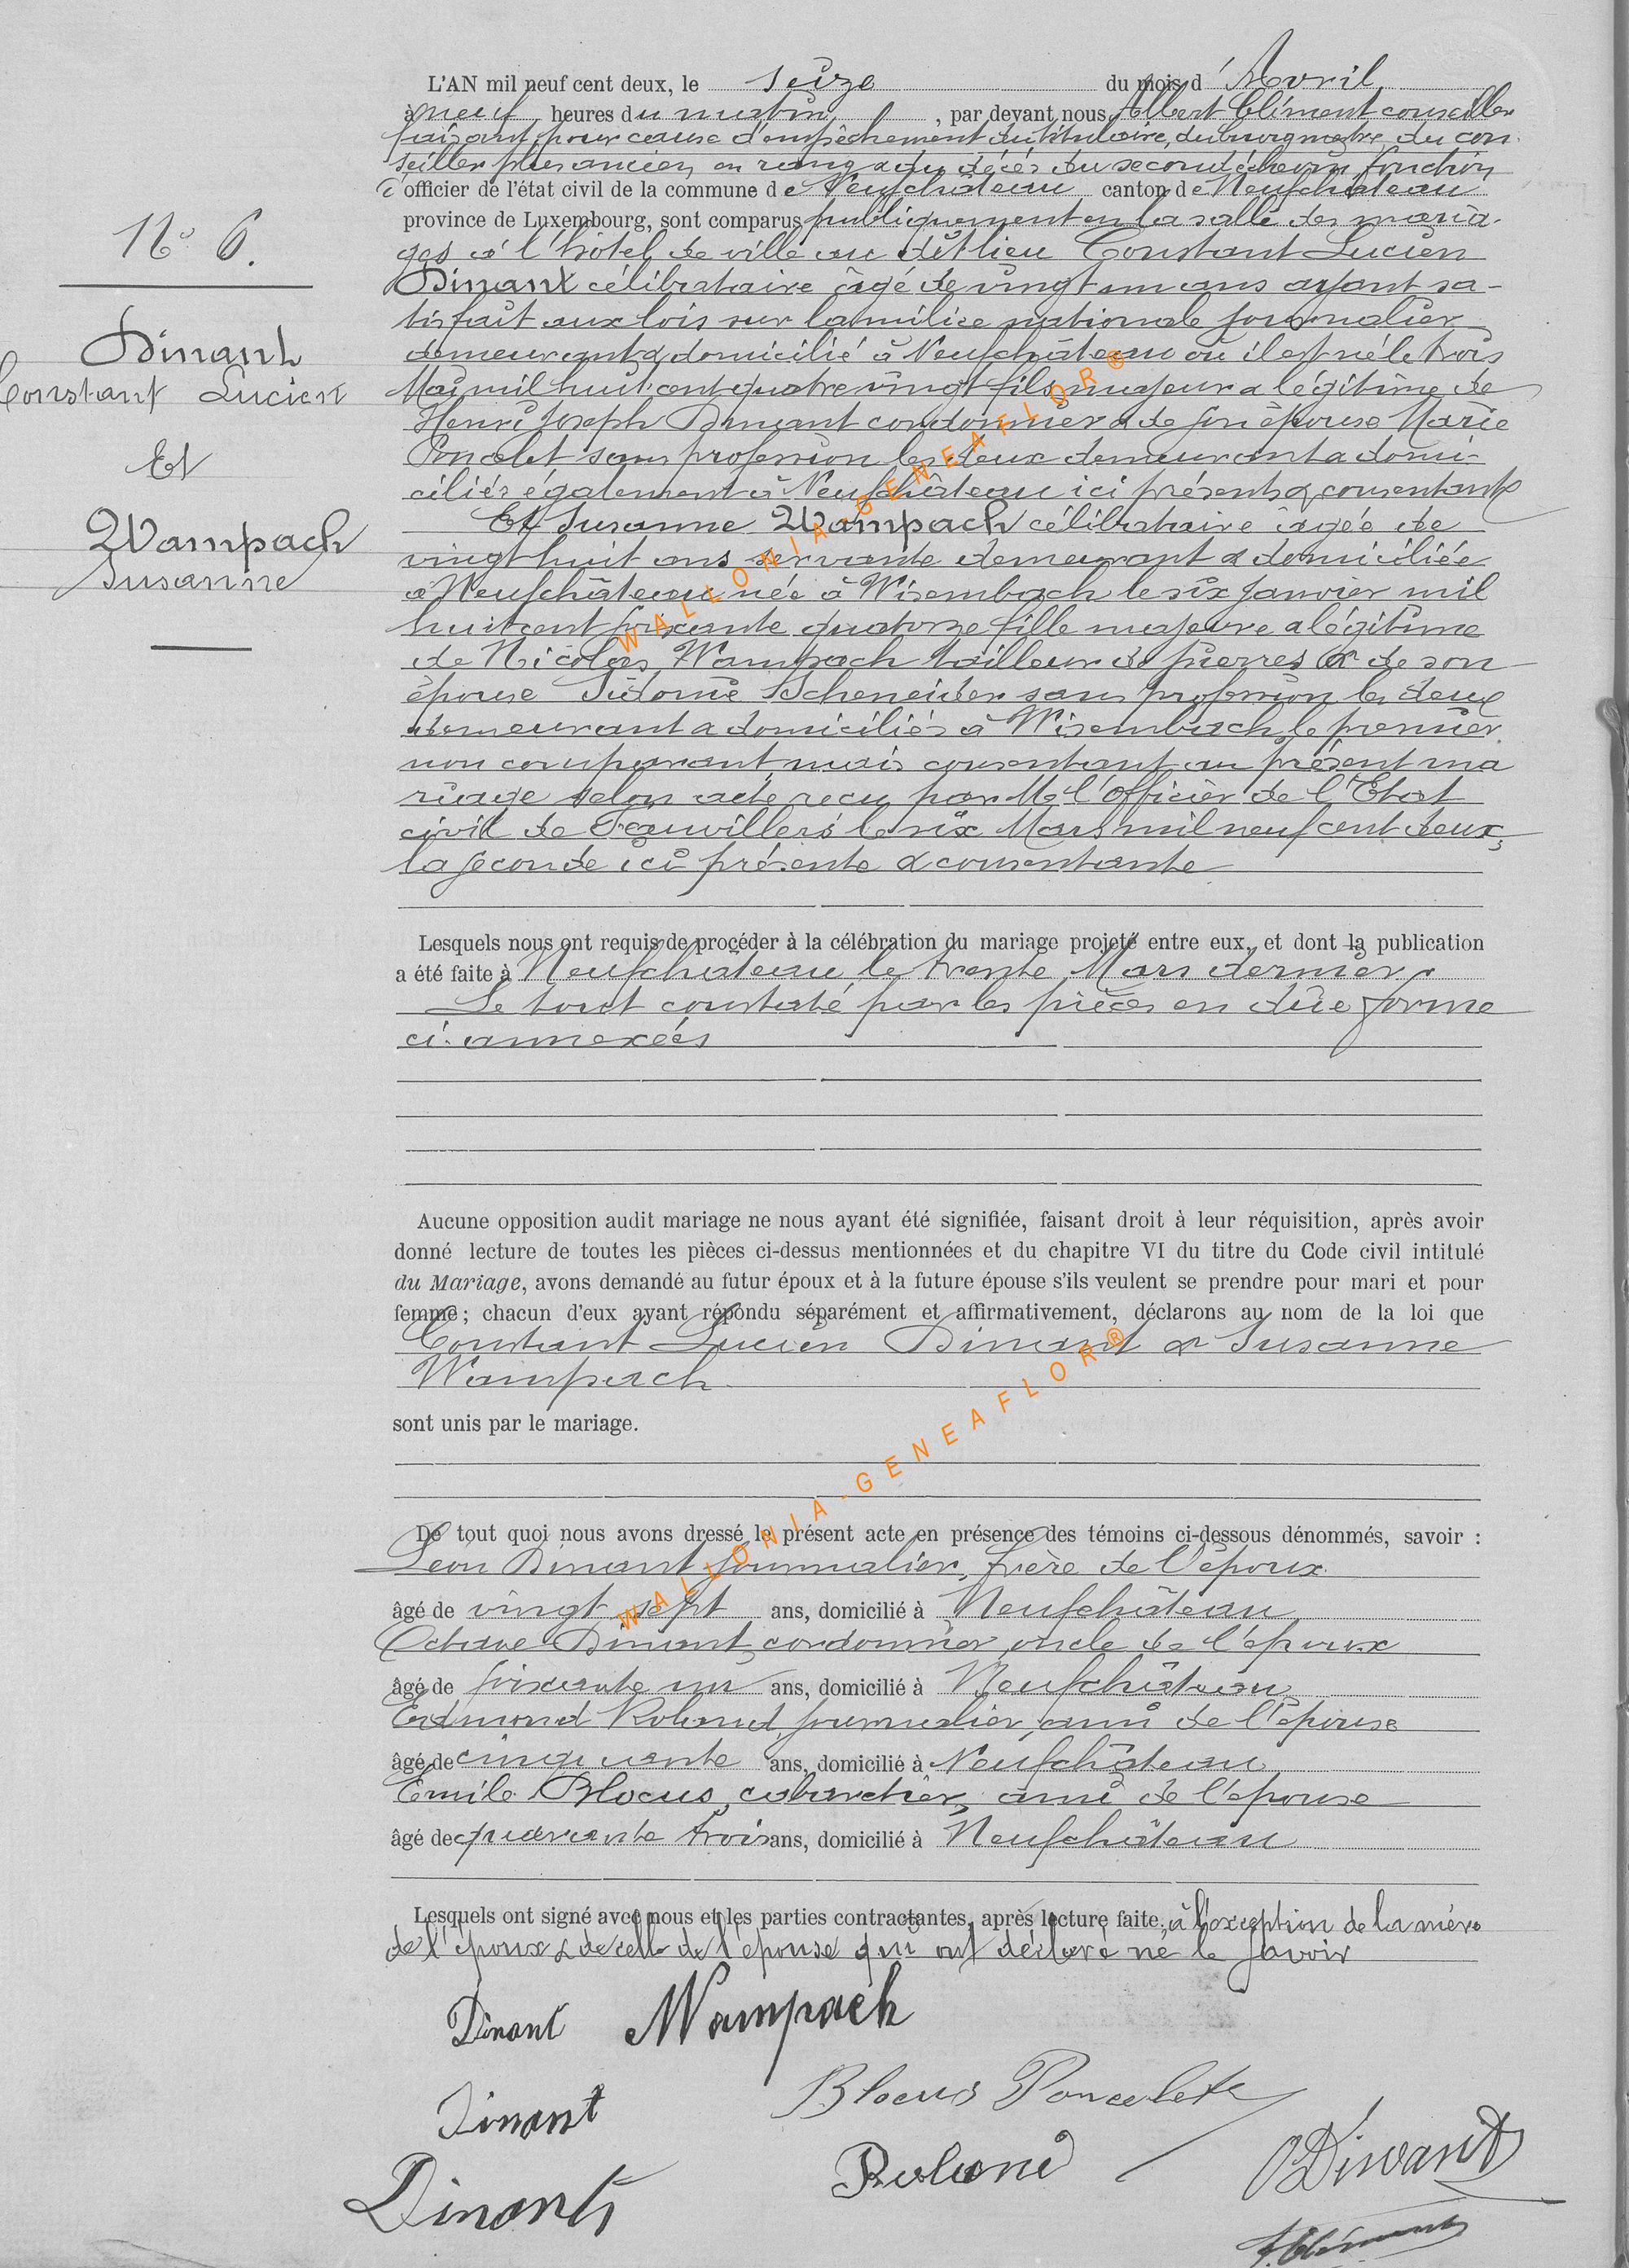 L'AN mil neuf cent deux, le seize du mois d'Avril
à neuf heures du matin, par devant nous Albert Clément conseiller
faisant pour cause d'empêchement du titulaire, du bourgmestre, du con-
seiller plus ancien en rang & du décès du second échevin fonction
d'officier de l'état civil de la commune de Neufchâteau canton de Neufchâteau
province de Luxembourg, sont comparus publiquement en la salle des maria-
ges à l'hôtel de ville au dit lieu Constant Lucien
Dinant célibataire âgé de vingt un ans ayant sa-
tisfait aux lois sur la milice nationale journalier
demeurant & domicilié à Neufchâteau où il est né le trois
Mai mil huit cent quatre vingt fils majeur & légitime de
Henri Joseph Dinant cordonnier & de son épouse Marie
Poncelet sans profession les deux demeurant & domi-
ciliés également à Neufchâteau ici présents & consentants
Et Susanne Wampach célibataire âgée de
vingt huit ans servante demeurant & domiciliée
à Neufchâteau née à Wisembach le six Janvier mil
huit cent soixante quatorze fille majeure & légitime
de Nicolas Wampach tailleur de pierres & de son
épouse Sidonie Scheneider sans profession les deux
demeurant & domiciliés à Wisembach, le premier
non comparant mais consentant au présent ma
riage selon acte reçu par Mr l'Officier de l'Etat
civil de Fauvillers le six Mars mil neuf cent deux,
la seconde ici présente & consentante
N° 6.
Dinant
Constant Lucien
Et
Wampach
Susanne
Lesquels nous ont requis de procéder à la célébration du mariage projeté entre eux, et dont la publication
a été faite à Neufchâteau le trente Mars dernier.
Le tout constaté par les pièces en dûe forme
ci-annexées
Aucune opposition audit mariage ne nous ayant été signifiée, faisant droit à leur réquisition, après avoir
donné lecture de toutes les pièces ci-dessus mentionnées et du chapitre VI du titre du Code civil intitulé
du Mariage, avons demandé au futur époux et à la future épouse s'ils veulent se prendre pour mari et pour
femme; chacun d'eux ayant répondu séparément et affirmativement, déclarons au nom de la loi que
Constant Lucien Dinant & Susanne
Wampach
sont unis par le mariage.
De tout quoi nous avons dressé le présent acte en présence des témoins ci-dessous dénommés, savoir :
Léon Dinant journalier, frère de l'époux
âgé de vingt sept ans, domicilié à Neufchâteau
Octave Dinant, cordonnier, oncle de l'époux
âgé de soixante un ans, domicilié à Neufchâteau
Edmond Roland, journalier, ami de l'épouse
âgé de cinquante ans, domicilié à Neufchâteau
Emile Blocus, cabaretier, ami de l'épouse
âgé de quarante trois ans, domicilié à Neufchâteau
Lesquels ont signé avec nous et les parties contractantes, après lecture faite, à l'exception de la mère
de l'époux & de celle de l'épouse qui ont déclaré ne le savoir
Dinant Wampach
Blocus Poncelet
Dinant
Roland
ODinant
Dinant
A Clément
WALLONIA-GENEAFLOR®
WALLONIA-GENEAFLOR®